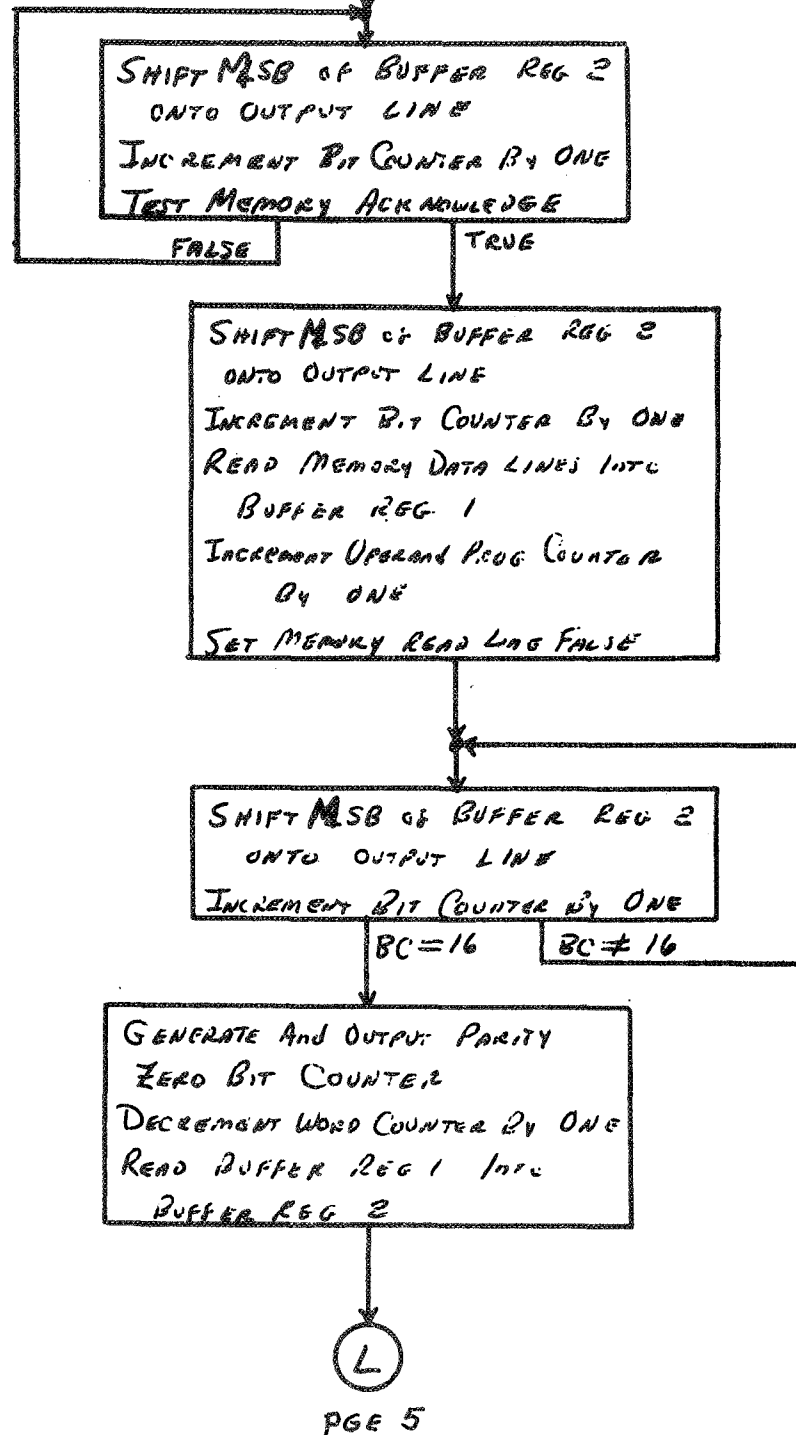 SHIFT MSB of BUFFER REG 2
ONTO OUTPUT LINE
INCREMENT BIT COUNTER By ONE
TEST MEMORY ACKNOWLEDGE
FALSE
TRUE
SHIFT MSB of BUFFER REG 2
ONTO OUTPUT LINE
INCREMENT BIT COUNTER By ONE
READ MEMORY DATA LINES INTO
BUFFER REG 1
INCREMENT OPERAND PROG COUNTER
By ONE
SET MEMORY READ LINE FALSE
SHIFT MSB of BUFFER REG 2
ONTO OUTPUT LINE
INCREMENT BIT COUNTER By ONE
BC=16
BC≠16
GENERATE And OUTPUT PARITY
ZERO BIT COUNTER
DECREMENT WORD COUNTER By ONE
READ BUFFER REG 1 INTO
BUFFER REG 2
L
PGE 5